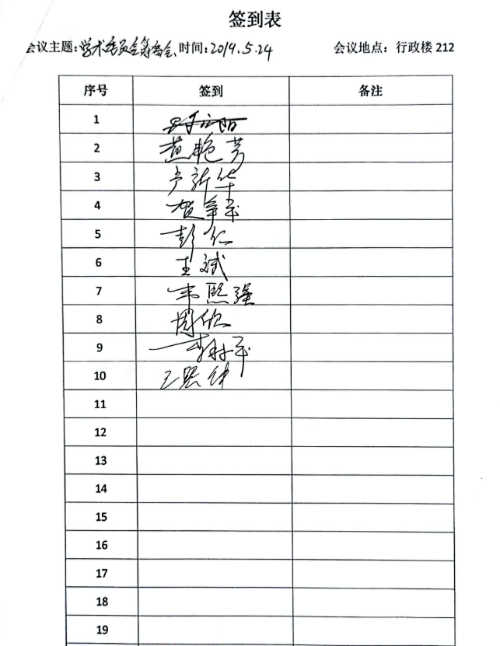 签到表
会议主题:学术委员会筹备会 时间:2019.5.24 会议地点:行政楼 212
序号 签到 备注
1
2 黄艳芳
3 卢新华
4 贺争
5 彭仁
6 王斌
7 韦熙强
8 周欣
9 李林平
10 王
11
12
13
14
15
16
17
18
19